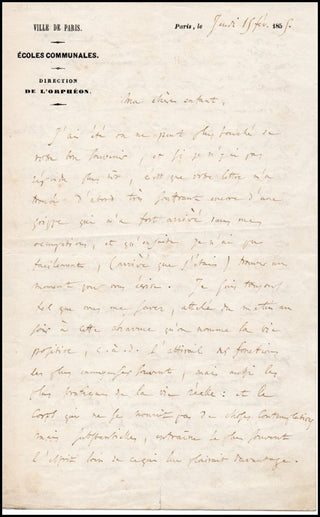 VILLE DE PARIS.
ÉCOLES COMMUNALES.
DIRECTION
DE L'ORPHÉON.
Paris, le Jeudi 15 fév. 1855.
Ma chère enfant,
J'ai été on ne peut plus touché de
votre bon souvenir, et si je n'y ai pas
répondu plus tôt, c'est que votre lettre m'a
trouvé d'abord très souffrant encore d'une
grippe qui m'a fort arriéré dans mes
occupations, et qu'ensuite je n'ai pu
facilement, (arriéré que j'étais) trouver un
moment pour vous écrire. Je suis toujours
tel que vous me savez, attelé du matin au
soir à cette charrue qu'on nomme la vie
positive, c.à.d. l'attirail des fonctions
les plus ennuyeuses souvent, mais aussi les
plus pratiques de la vie réelle: et le
corps qui ne se nourrit pas de choses contemplatives
mais substantielles, entraîne le plus souvent
l'esprit loin de ce qui lui plairait davantage.